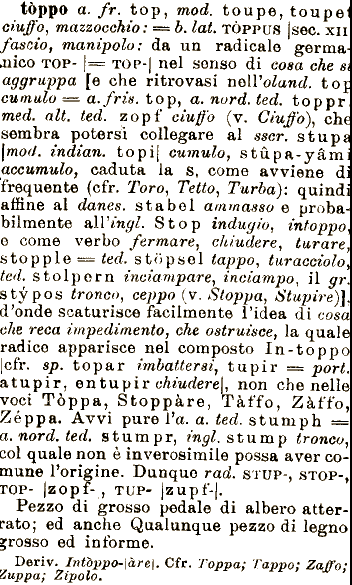 tòppo a. fr. top, mod. toupe, toupet
ciuffo, mazzocchio: = b. lat. TÒPPUS |sec. XII|
fascio, manipolo: da un radicale germa-
nico TOP- |= TOP-| nel senso di cosa che si
aggruppa [e che ritrovasi nell'oland. top
cumulo = a. fris. top, a. nord. ted. toppr,
med. alt. ted. zopf ciuffo (v. Ciuffo), che
sembra potersi collegare al sscr. stupa
|mod. indian. topi| cumulo, stûpa-yâmi
accumulo, caduta la s, come avviene di
frequente (cfr. Toro, Tetto, Turba): quindi
affine al danes. stabel ammasso e proba-
bilmente all'ingl. Stop indugio, intoppo,
e come verbo fermare, chiudere, turare,
stopple = ted. stöpsel tappo, turacciolo,
ted. stolpern inciampare, inciampo, il gr.
stýpos tronco, ceppo (v. Stoppa, Stupire)],
d'onde scaturisce facilmente l'idea di cosa
che reca impedimento, che ostruisce, la quale
radice apparisce nel composto In-toppo
|cfr. sp. topar imbattersi, tupir = port.
atupir, entupir chiudere|, non che nelle
voci Tòppa, Stoppàre, Tàffo, Zàffo,
Zéppa. Avvi pure l'a. a. ted. stumph =
a. nord. ted. stumpr, ingl. stump tronco,
col quale non è inverosimile possa aver co-
mune l'origine. Dunque rad. STUP-, STOP-,
TOP- |zopf-, TUP- |zupf-|.
Pezzo di grosso pedale di albero atter-
rato; ed anche Qualunque pezzo di legno
grosso ed informe.
Deriv. Intòppo-|àre|. Cfr. Toppa; Tappo; Zaffo;
Zuppa; Zipolo.